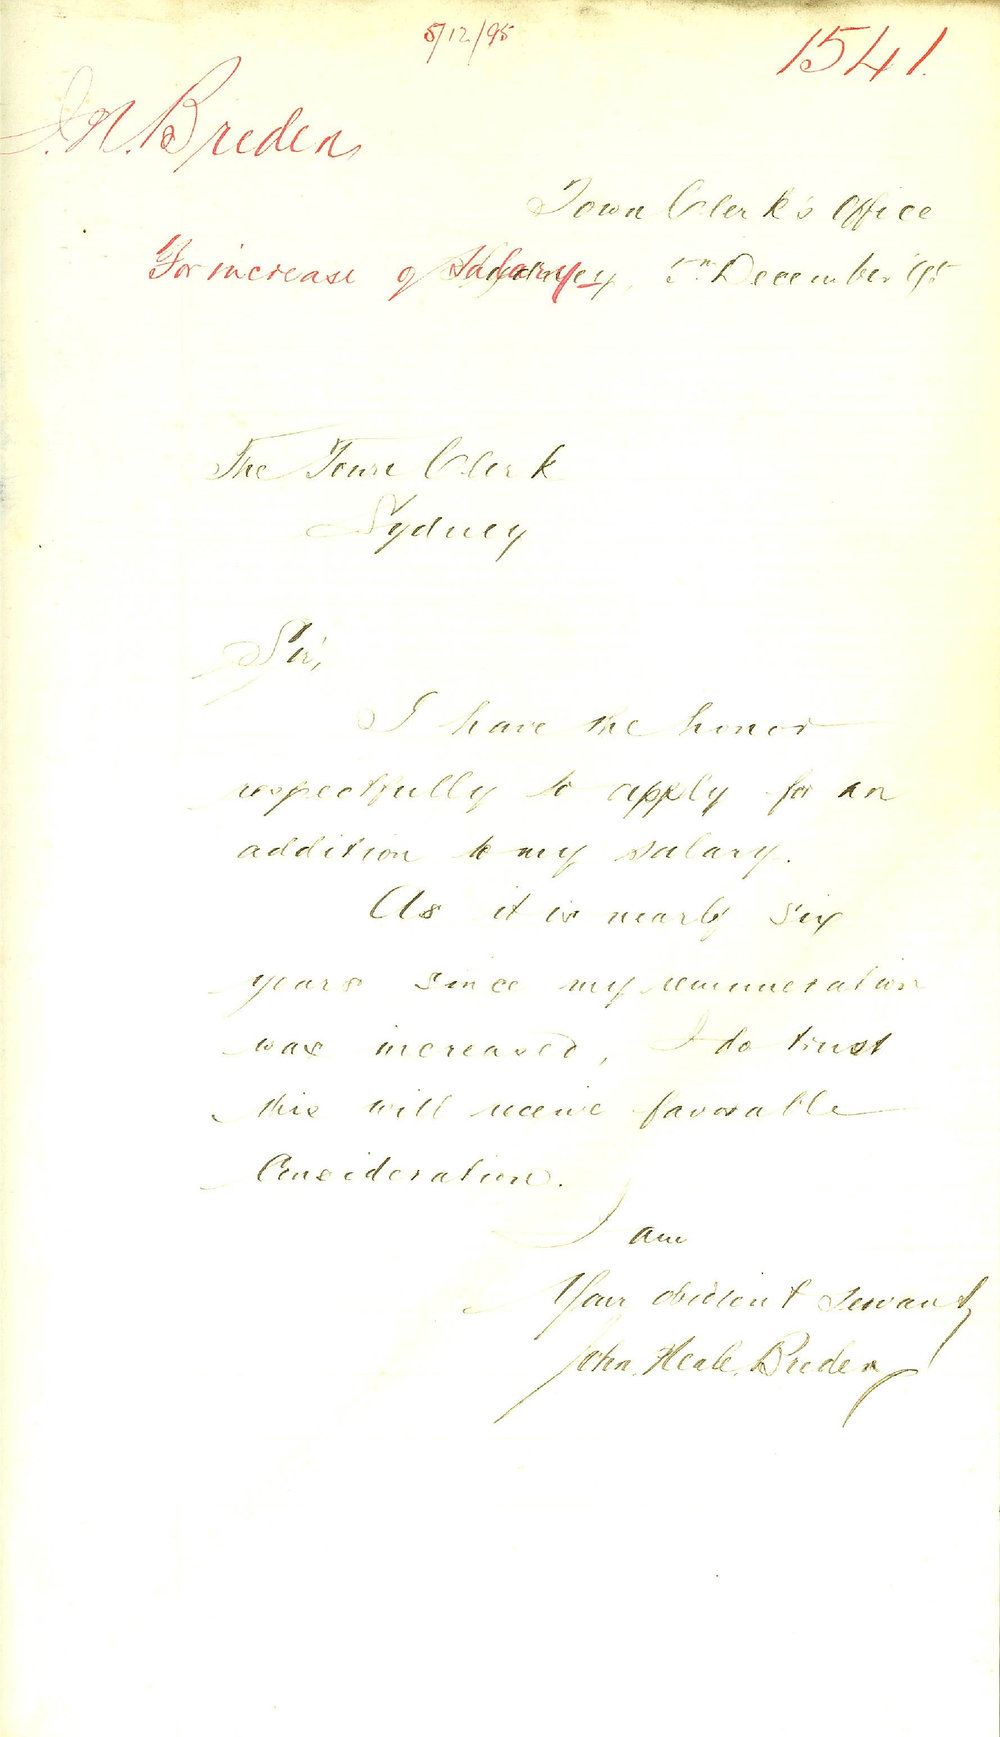 5/12/95
1541.
J. N. Breden
Town Clerk's Office
For increase of Salary
Sydney, 5th December '95
The Town Clerk
Sydney
Sir,
I have the honor
respectfully to apply for an
addition to my salary.
As it is nearly six
years since my remuneration
was increased, I do trust
this will receive favorable
Consideration.
I am
Your obedient Servant,
John Neale Breden